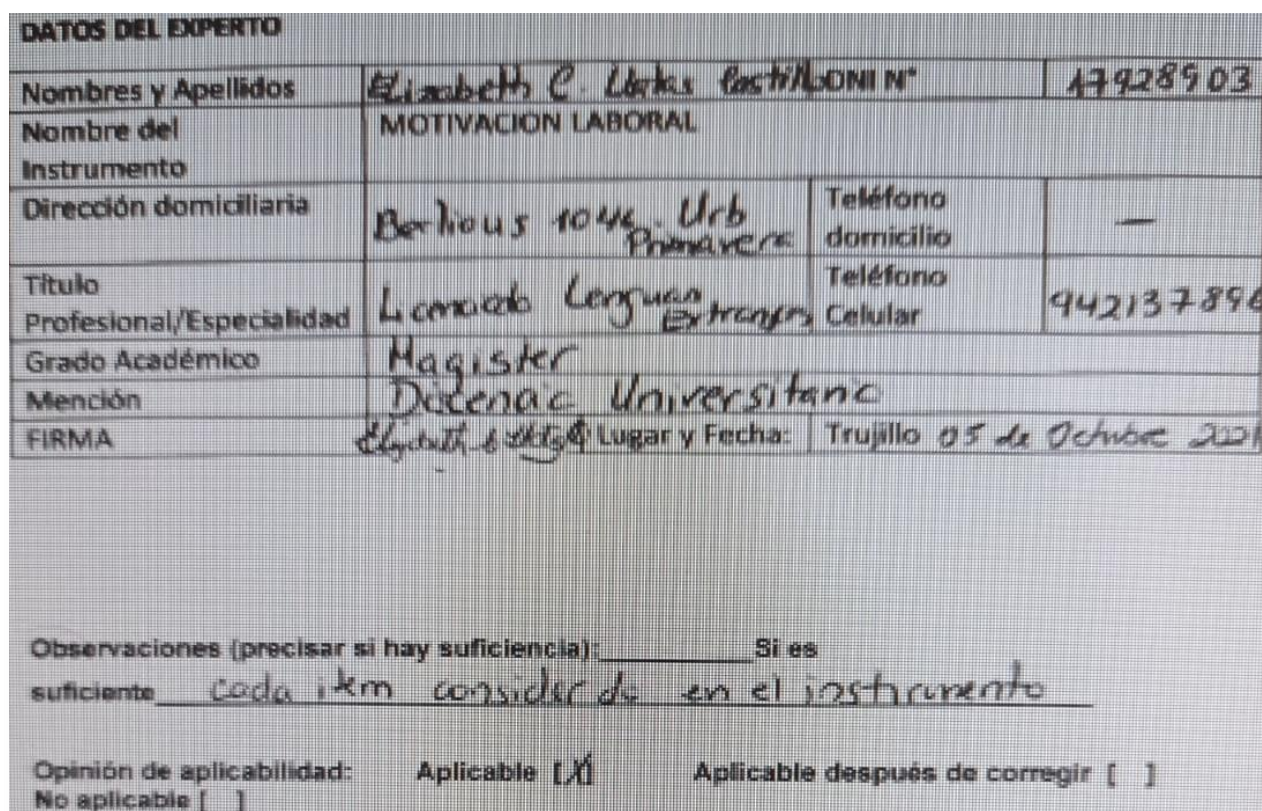 DATOS DEL EXPERTO
Nombres y Apellidos Elizabeth C. DNI N° 17928903
Nombre del MOTIVACION LABORAL
Instrumento
Dirección domiciliaria 1046 Urb Primavera Teléfono domicilio —
Título Profesional/Especialidad Lenguas Teléfono Celular 942137896
Grado Académico Magister
Mención Universitaria
FIRMA Lugar y Fecha: Trujillo 05 de Octubre 2021
Observaciones (precisar si hay suficiencia):__________Si es
suficiente cada item en el instrumento
Opinión de aplicabilidad: Aplicable [X] Aplicable después de corregir [ ]
No aplicable [ ]